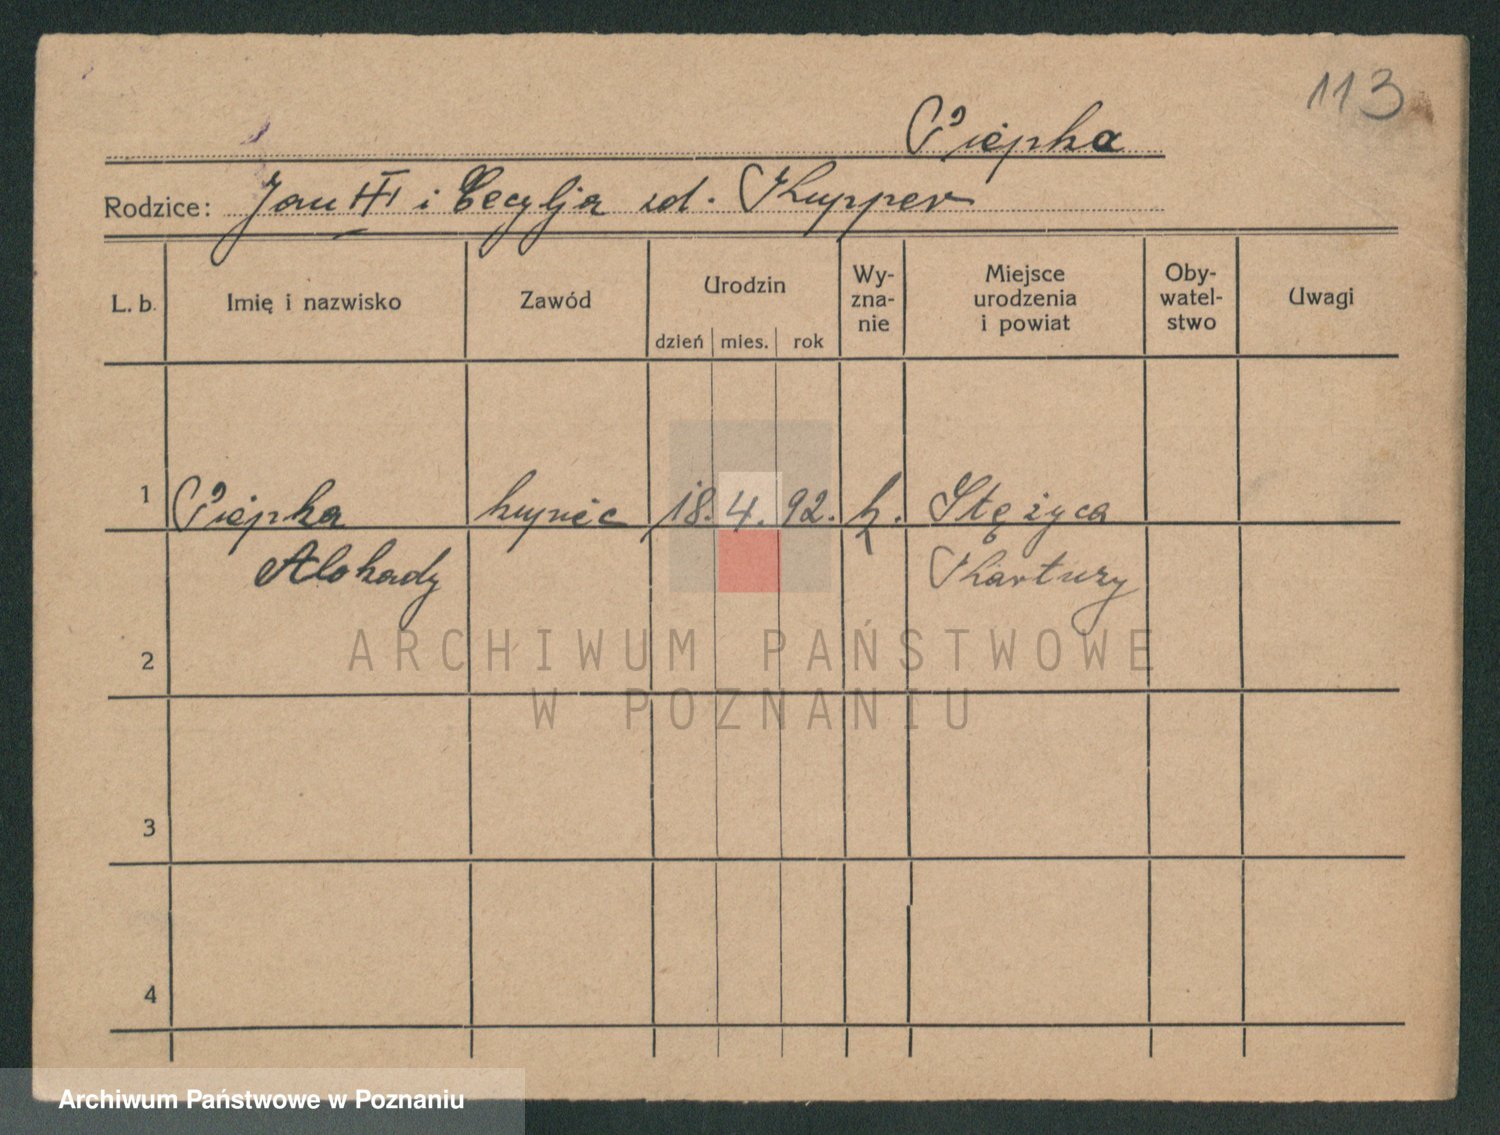 113
Piepka
Rodzice: Jan III i Cecylja zd. Kupper
L. b. Imię i nazwisko Zawód Urodzin Wy-zna-nie Miejsce urodzenia i powiat Oby-watel-stwo Uwagi
dzień mies. rok
1 Piepka kupiec 18. 4. 92. k. Stężyca
Kartuzy
2
3
4
ARCHIWUM PAŃSTWOWE
W POZNANIU
Archiwum Państwowe w Poznaniu